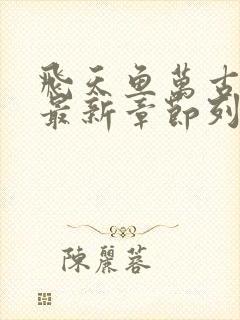 飛天鱼萬古
最新章節列
陳麗蓉